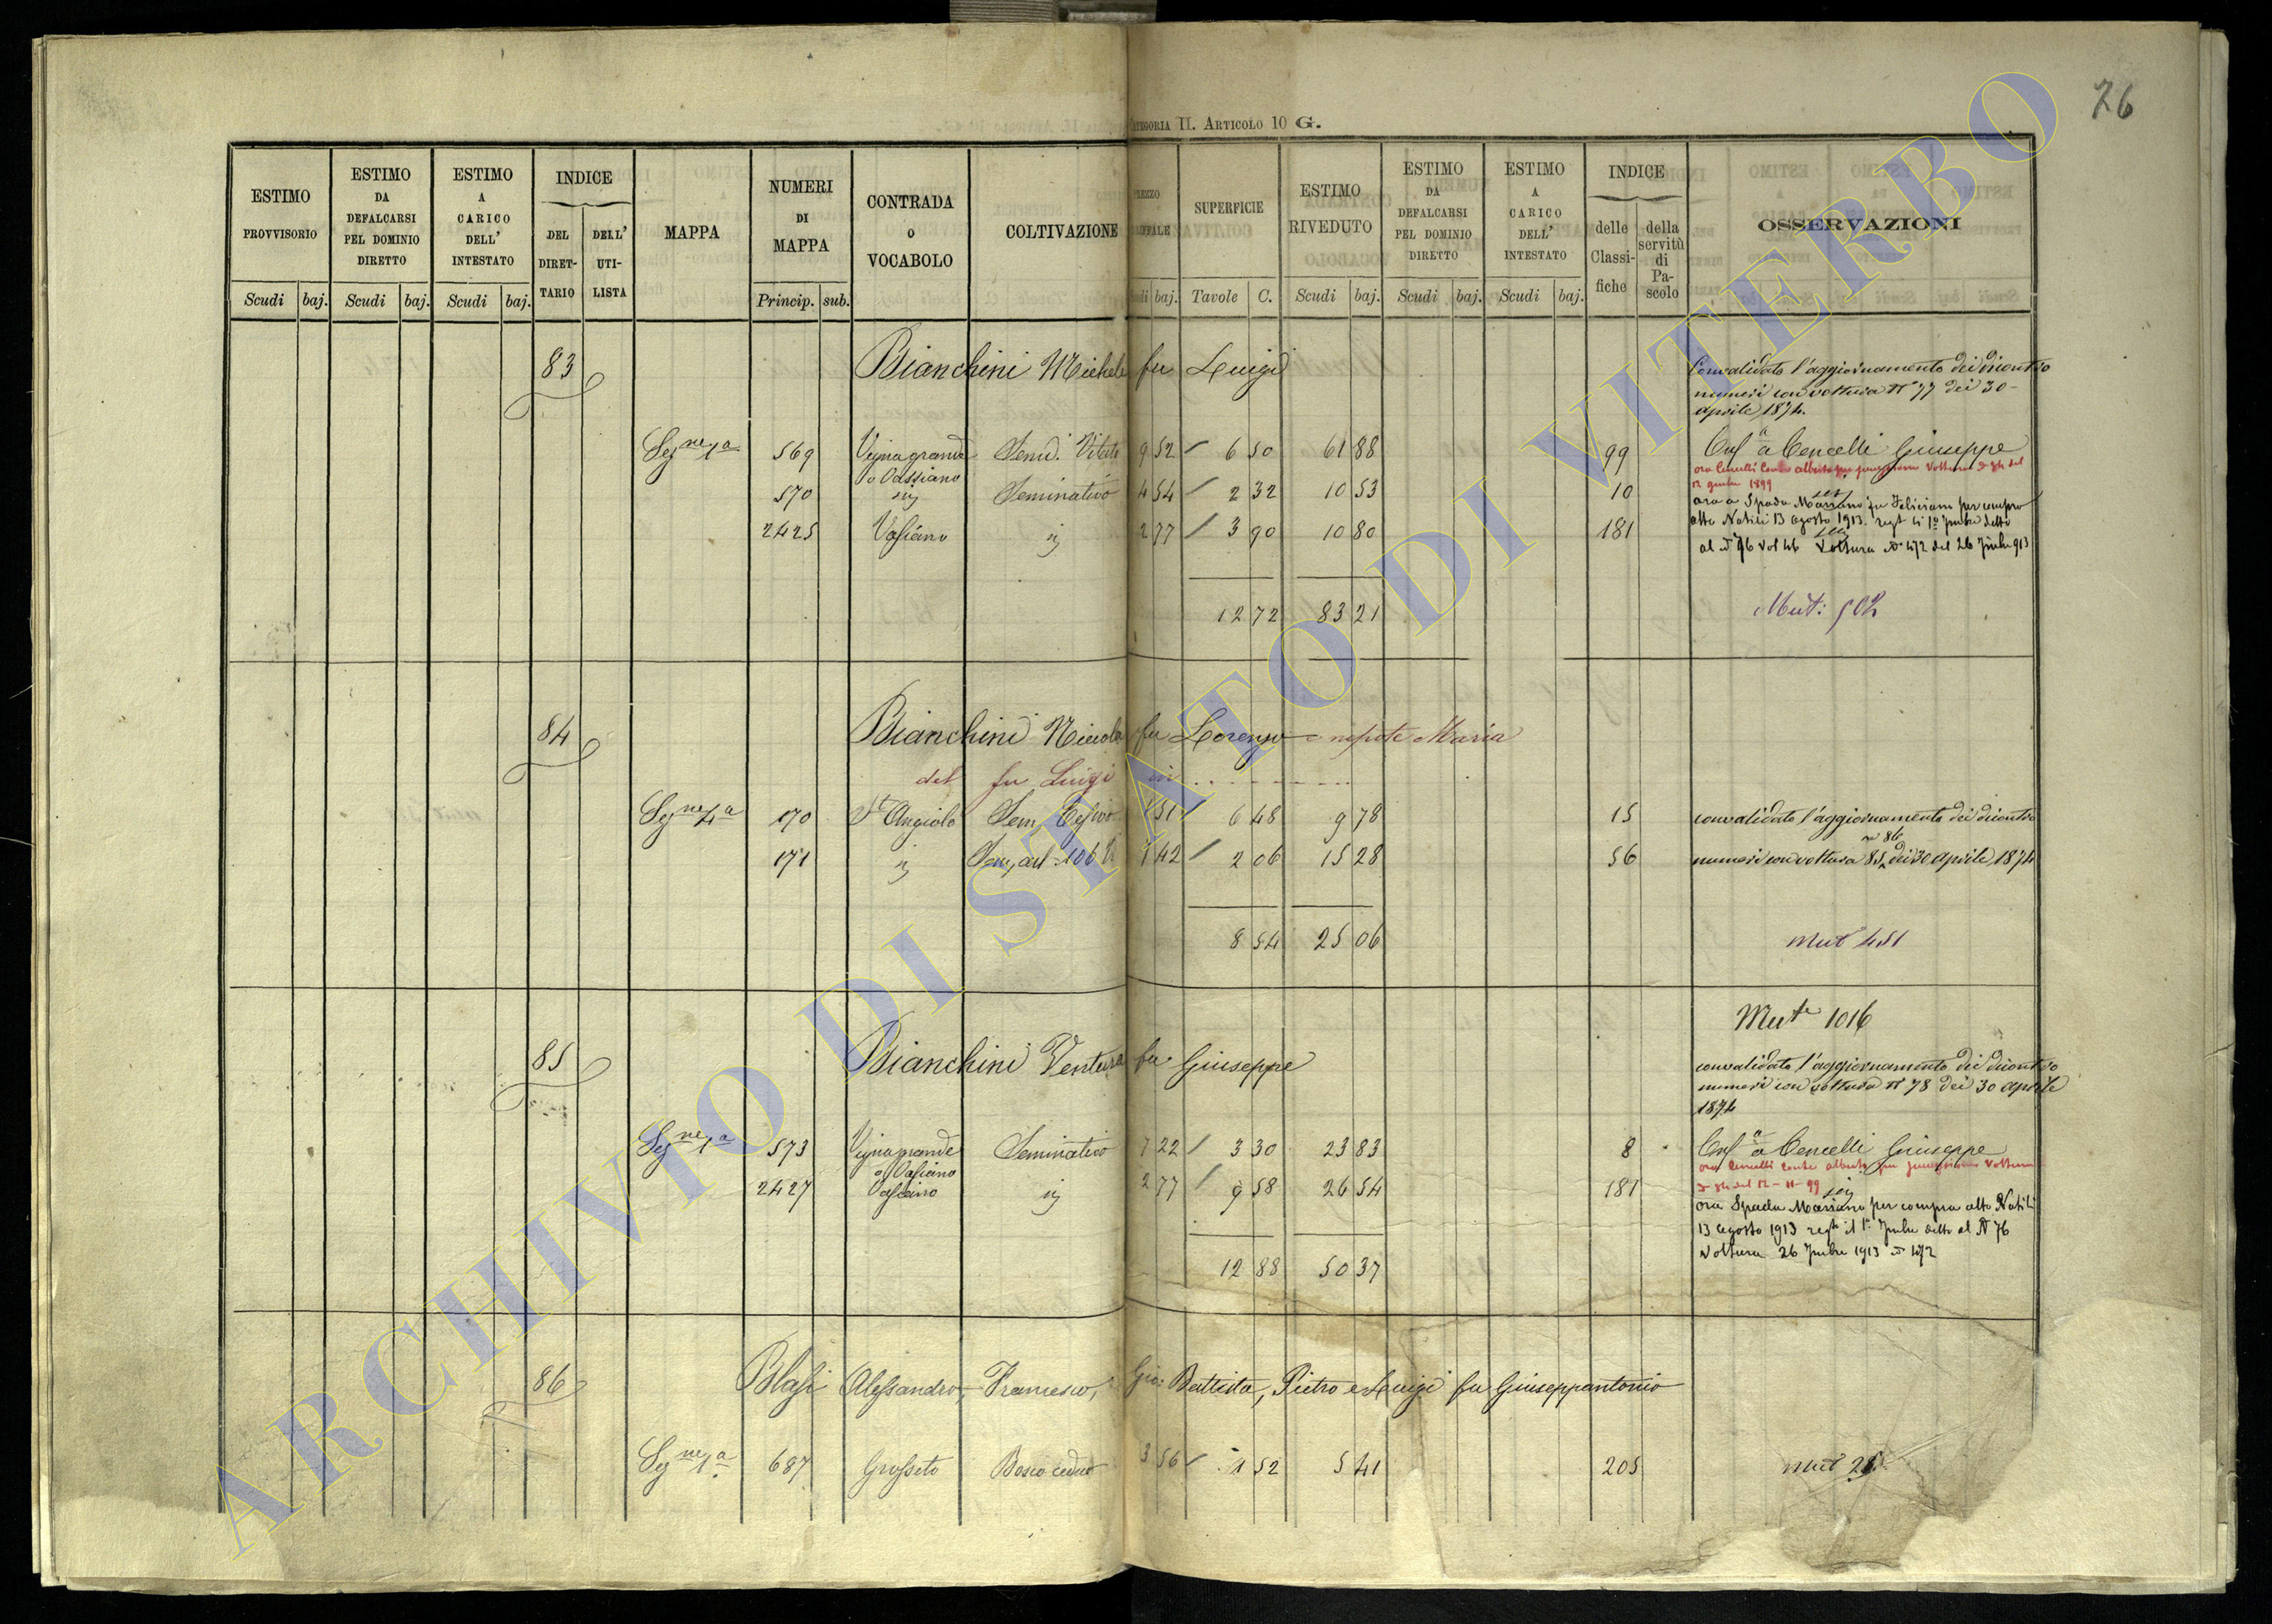 76
CATEGORIA II. ARTICOLO 10 G.
ESTIMO PROVVISORIO Scudi baj.
ESTIMO DA DEFALCARSI PEL DOMINIO DIRETTO Scudi baj.
ESTIMO A CARICO DELL' INTESTATO Scudi baj.
INDICE DEL DIRETTARIO DELL' UTILISTA
MAPPA
NUMERI DI MAPPA Princip. sub.
CONTRADA O VOCABOLO
COLTIVAZIONE
baj.
SUPERFICIE Tavole C.
ESTIMO RIVEDUTO Scudi baj.
ESTIMO DA DEFALCARSI PEL DOMINIO DIRETTO Scudi baj.
ESTIMO A CARICO DELL' INTESTATO Scudi baj.
INDICE delle Classifiche della servitù di Pascolo
OSSERVAZIONI
83 Bianchini Michele fu Luigi
Convalidato l'aggiornamento dei dicontro
numeri con voltura N° 77 dei 30
aprile 1874.
Sezne 1a 569 Vignagrande o Vassiano Semi. Vitato 9 52 6 50 61 88 99
Enfa a Cencelli Giuseppe
570 iij Seminativo 4 54 2 32 10 53 10
ora a Spada Mariano fu Feliciano per compra
2425 Vasiano iij 2 77 3 90 10 80 181
atto Natili 13 agosto 1913. regt li 1° 7mbre detto
al N° 76 Vol 46 Voltura N° 472 del 26 7mbre 913
12 72 83 21
Mut: 502
84 Bianchini Niccola fu Lorenzo e nipote Maria
del fu Luigi in
Sezne 4a 170 St Angiolo Sem. 1 51 6 48 9 78 15
convalidato l'aggiornamento dei dicontro
n° 86
171 iij 7 42 2 06 15 28 56
numeri con voltura 85 dei 30 aprile 1874
8 54 25 06
Mut 451
Mute 1016
85 Bianchini Ventura fu Giuseppe
convalidato l'aggiornamento dei dicontro
numeri con voltura N° 78 dei 30 aprile
1874
Sezne 1a 573 Vignagrande o Vasiano Seminativo 7 22 3 30 23 83 8
Enfa a Cencelli Giuseppe
ora Cencelli Conte Alberto per successione Voltura
2427 Vasiano iij 2 77 9 58 26 54 181
ora Spada Mariano per compra atto Natili
13 agosto 1913 regto il 1° 7mbre detto al N° 76
Voltura 26 7mbre 1913 N° 472
12 88 50 37
86 Blasi Alessandro, Francesco, Gio: Battista, Pietro e Luigi fu Giuseppantonio
Sezne 1a 687 Grosseto Bosco ceduo 3 56 1 52 5 41 205
Mut 28
ARCHIVIO DI STATO DI VITERBO